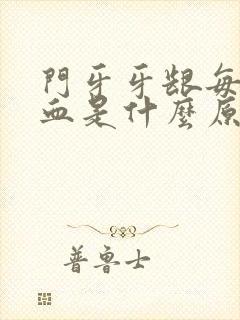 門牙牙龈每
血是什麼原
普魯士